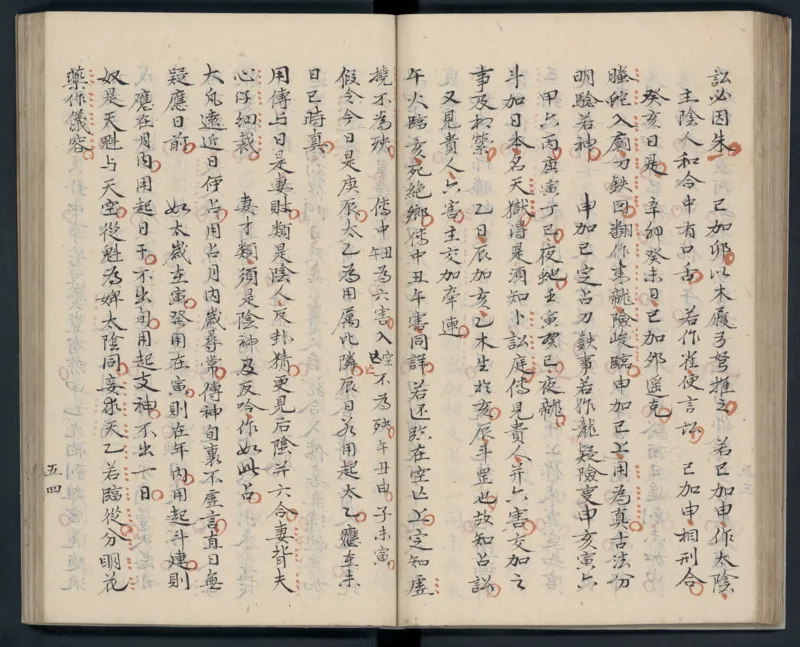 訟必因朱　已加卯以木履弓弩推之　若已加申作太陰
主陰人和合中有口舌　若作雀便言訟　已加申相刑合
癸亥日是　辛卯癸未日已加卯遥克
螣蛇入廟刀鉄囙翻作朱龍險峻臨申加已上用為真古法份
明驗若神　申加已定占刀鉄事若作龍疑險変申亥寅六
甲六丙庚寅丁已夜虵壬寅癸已夜龍
斗加日本名天獄淂是湏知小訟庭傳見貴人并六害交加之
事及枷禁　乙日辰加亥乙木生於亥辰斗罡也故知占訟
又見貴人六害主交加牽連
午火臨亥死絶鄉傳中丑午害同詳若还跡在空亡上定知虛
撓不為殃　傳中丑午為六害入空亡不為殃午丑申子未寅
假令今日是庚辰太乙為用属比隣辰日若用起太乙癮在未
日已時真
用傳与日是妻財類是陰人反卦猜更見后陰并六合妻背夫
心仔細裁　妻才類須是陰神及反吟作如此占
大凡遠近日伻占用占月內歲尋常傳神旬裏不虛言直日無
疑應日前　如太歲在寅発用在寅則在年內用起斗建則
應在月內用起日干不出旬用起支神不出一日
奴是天魁与天空從魁為婢太陰同妾求天乙若臨從分明花
藥作儀容
五四